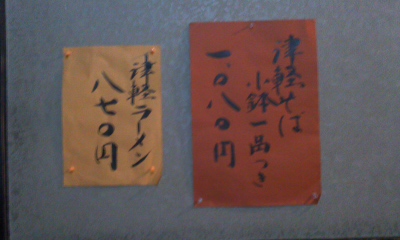 津軽そば
小鉢一品つき
一、〇八〇円
津軽ラーメン
八七〇円